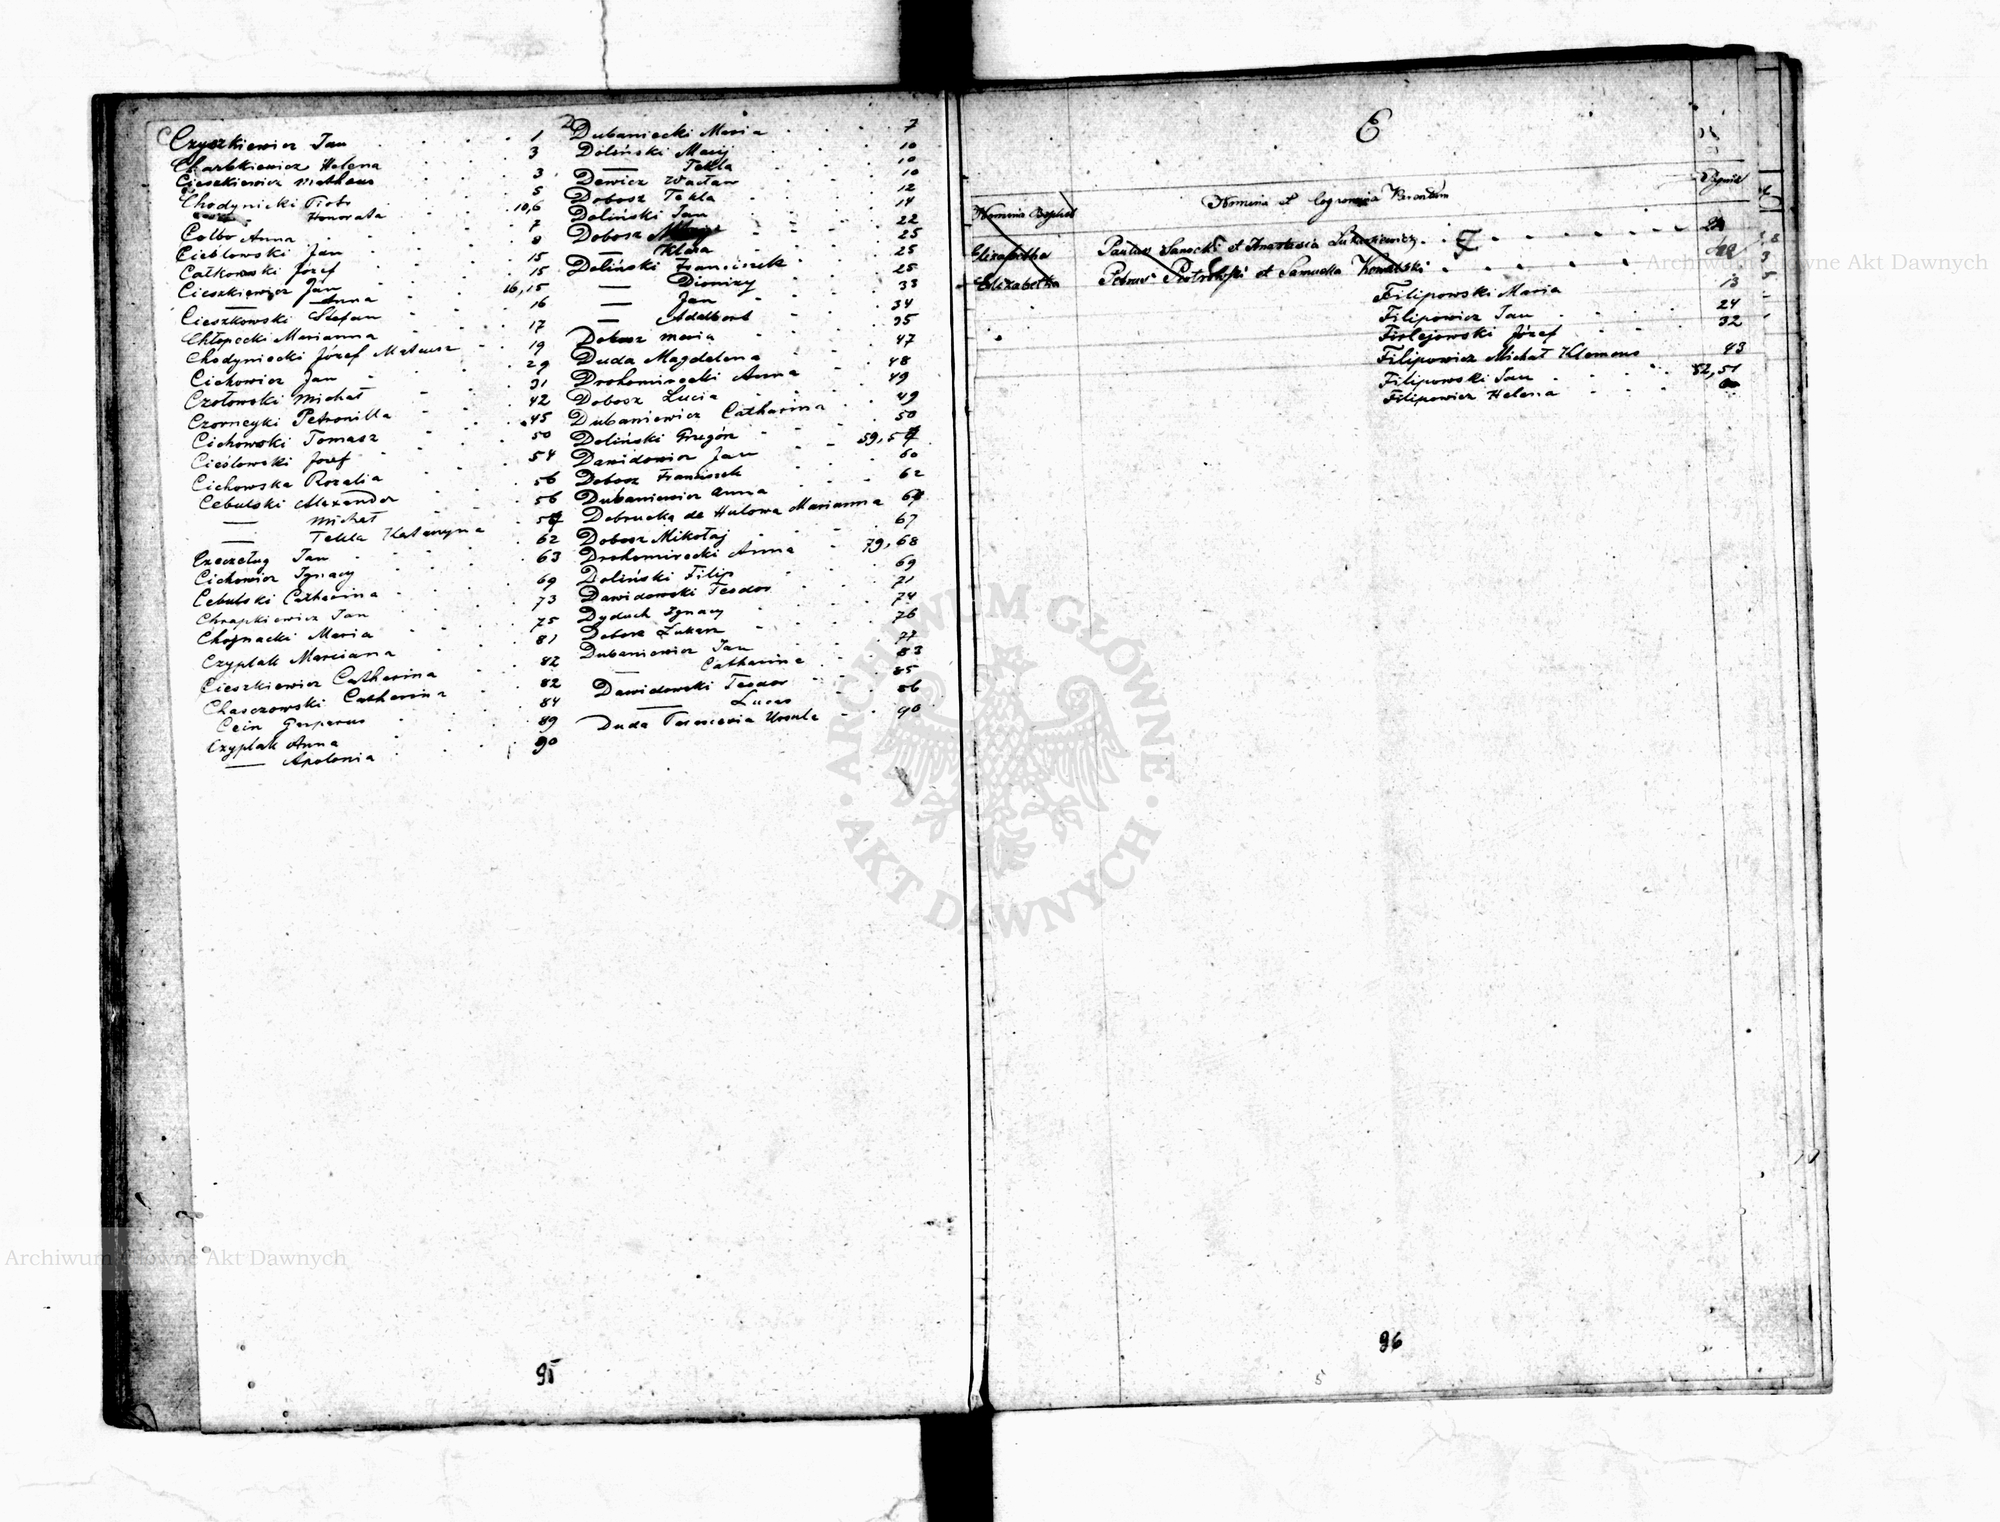 C
Czyszkiewicz Jan . . . 1
Charbkiewicz Helena . . . 3
Cieszkiewicz Matheus . . . 3
Chodynicki Piotr . . . 5
— Honorata . . . 10,6
Colbo Anna . . . 7
Cieblowski Jan . . . 8
Całkowski Józef . . . 15
Cieszkiewicz Jan . . . 15
— Anna . . . 16,15
Cieszkowski Stefan . . . 16
Chłopecki Marianna . . . 17
Chodyniecki Józef Mateusz . . . 19
Cichowicz Jan . . . 29
Czołowski Michał . . . 31
Czorneyki Petronilla . . . 42
Cichowski Tomasz . . . 45
Cieślowski Józef . . . 50
Cichowska Rozalia . . . 54
Cebulski Alexander . . . 56
— Michał . . . 56
— Tekla Katarzyna . . . 57
Czeczeług Jan . . . 62
Cichowicz Ignacy . . . 63
Cebulski Catharina . . . 69
Chrapkiewicz Jan . . . 73
Chojnacki Maria . . . 75
Czyplak Marciana . . . 81
Cieszkiewicz Catharina . . . 82
Chaszowski Catharina . . . 82
Cein Gasparus . . . 84
Czyplak Anna . . . 89
— Apolonia . . . 90
D
Dubaniecki Maria . . . 7
Doliński Macij . . . 10
— Tekla . . . 10
Dewicz Wacław . . . 10
Dobosz Tekla . . . 12
Doliński Jan . . . 14
Dobosz . . . 22
— Klara . . . 25
Doliński Franciszek . . . 25
— Dionizy . . . 25
— Jan . . . 33
— Adalbert . . . 34
Dobosz Maria . . . 35
Duda Magdalena . . . 47
Drohomirecki Anna . . . 48
Dobosz Lucia . . . 49
Dubaniewicz Catharina . . . 49
Doliński Grzegórz . . . 50
Dawidowicz Jan . . . 59,57
Dobosz Franciszek . . . 60
Dubaniewicz Anna . . . 62
Dobrucka de Hulowa Marianna 64
Dobosz Mikołaj . . . 67
Drohomirecki Anna . . . 79,68
Doliński Filip . . . 69
Dawidowski Teodor . . . 71
Dyduch Ignacy . . . 74
Dobosz Łukasz . . . 76
Dubaniewicz Jan . . . 77
— Catharina . . . 83
Dawidowski Teodor . . . 85
— Lucas . . . 86
Duda Ursula . . . 90
95
E
Nomina Baptis Nomina et Cognomina Parentum Pagina
Elisabetha Paulus Sanocki et Anastasia Łukasiewicz . . .
Elizabetha Petrus Piotrowski et Samuella Kowalski . . .
F
Filipowski Maria . . . 13
Filipowicz Jan . . . 24
Firlejowski Józef . . . 32
Filipowicz Michał Klemens . . . 43
Filipowski Jan . . . 52,51
Filipowicz Helena
96
5
Archiwum Główne Akt Dawnych
ARCHIWUM GŁÓWNE
· AKT DAWNYCH ·
Archiwum Główne Akt Dawnych